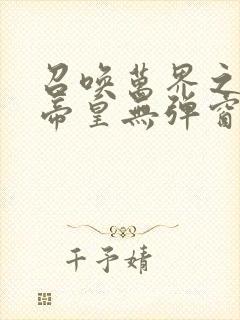 召唤萬界之
帝皇無弹窗
千予婧